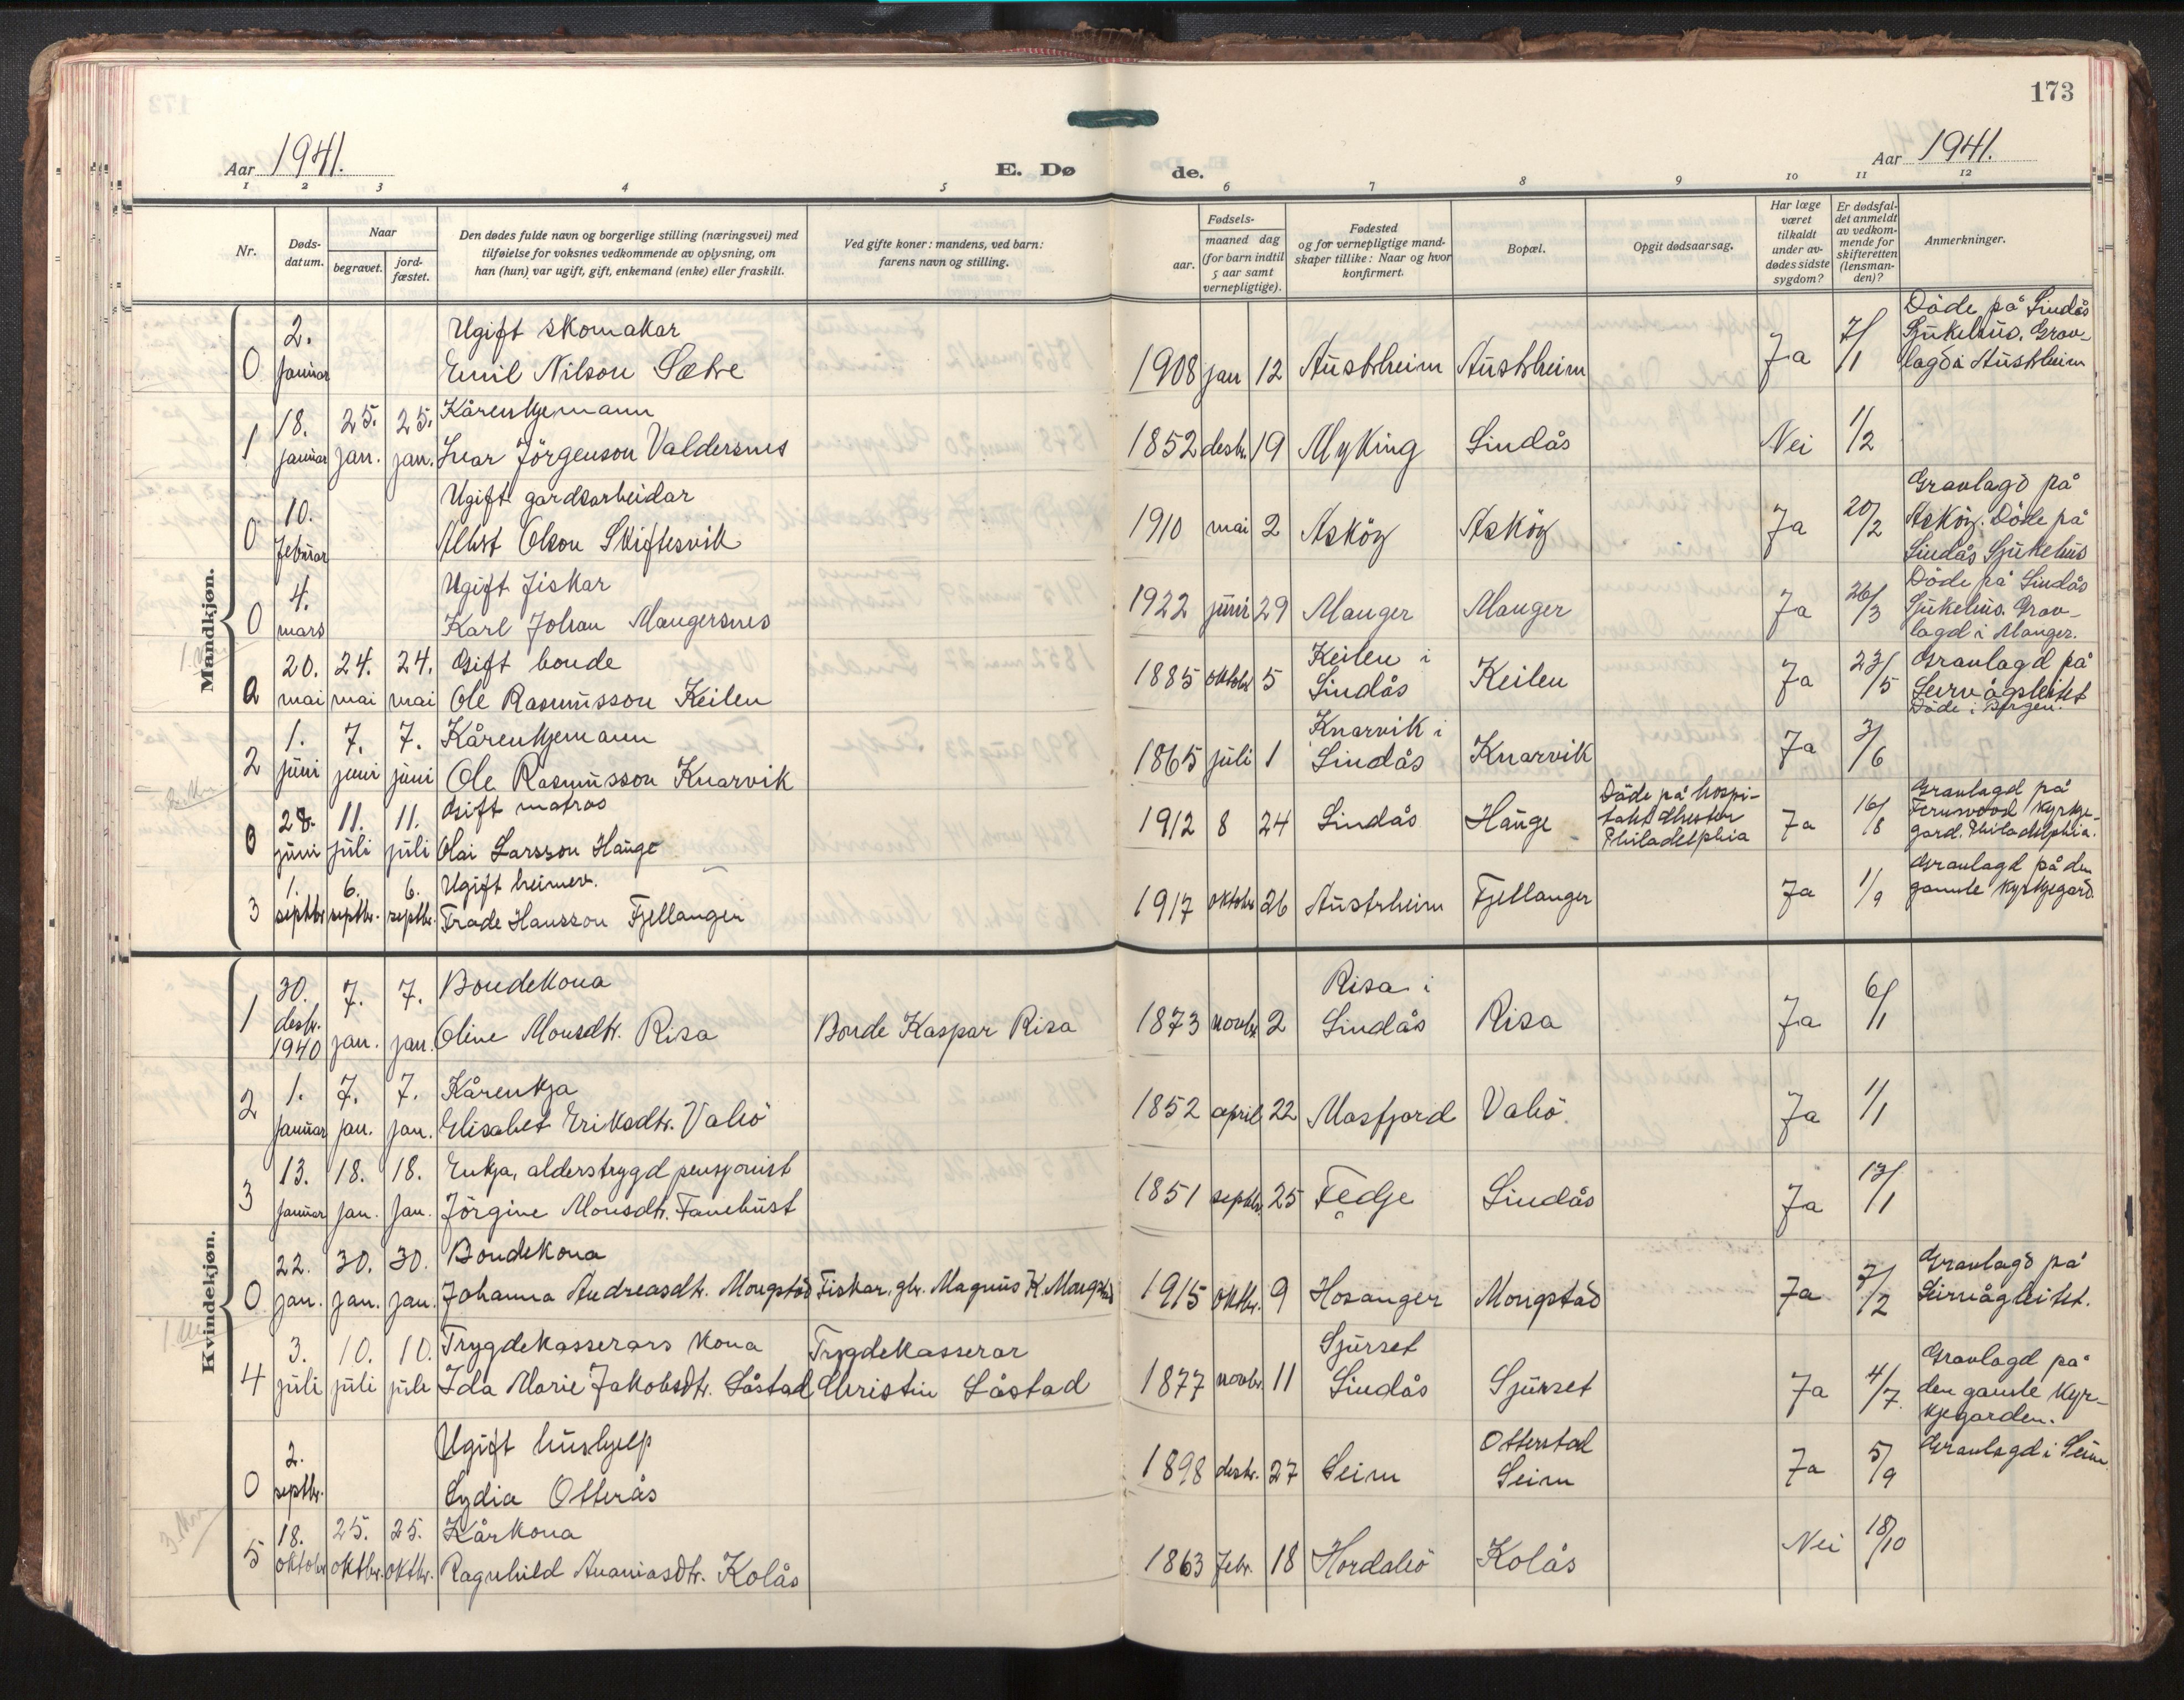 173
Aar 1941.
E. Dø
de.
Aar 1941.
1 2 3 4 5 6 7 8 9 10 11 12
Nr.
Døds-
datum.
Naar
begravet.
jord-
fæstet.
Den dødes fulde navn og borgerlige stilling (næringsvei) med
tilføielse for voksnes vedkommende av oplysning, om
han (hun) var ugift, gift, enkemand (enke) eller fraskilt.
Ved gifte koner: mandens, ved barn:
farens navn og stilling.
Fødsels-
aar.
maaned dag
(for barn indtil
5 aar samt
vernepligtige).
Fødested
og for vernepligtige mand-
skaper tillike: Naar og hvor
konfirmert.
Bopæl.
Opgit dødsaarsag.
Har læge
været
tilkaldt
under av-
dødes sidste
sygdom?
Er dødsfal-
det anmeldt
av vedkom-
mende for
skifteretten
(lensman-
den)?
Anmerkninger.
Mandkjøn.
0 2. januar
Ugift skomakar
Emil Nilson Sætre
1908 jan 12 Austrheim Austrheim Ja 7/1
Döde på Lindås
Sjukehus. Grav-
lagd i Austrheim
1 18. januar 25. jan. 25. jan.
Kårenkjemann
Ivar Jörgenson Valdersnes
1852 desbr. 19 Myking Lindås Nei 1/2
0 10. februar
Ugift gardsarbeidar
Olson Skiftesvik
1910 mai 2 Asköy Asköy Ja 20/2
Gravlagd på
Asköy. Döde på
Lindås Sjukehus
0 4. mars
Ugift fiskar
Karl Johan Mangersnes
1922 juni 29 Manger Manger Ja 26/3
Döde på Lindås
Sjukehus. Grav-
lagd i Manger.
0 20. mai 24. mai 24. mai
Gift bonde
Ole Rasmusson Keilen
1885 oktobr 5 Keilen i
Lindås Keilen Ja 23/5
Gravlagd på
Leirvågsleitet
Döde i Bergen.
2 1. juni 7. juni 7. juni
Kårenkjemann
Ole Rasmusson Knarvik
1865 juli 1 Knarvik i
Lindås Knarvik Ja 3/6
0 28. juni 11. juli 11. juli
Gift matros
Olai Larsson Hauge
1912 8 24 Lindås Hauge
Döde på hospi-
Philadelphia Ja 16/8
Gravlagd på
Fernwood kyrkje-
gard. Philadelphia.
3 1. septbr 6. septbr. 6. septbr.
Ugift heimev.
Hansson Fjellanger
1917 oktobr 26 Austrheim Fjellanger Ja 1/9
Gravlagd på den
gamle kyrkjegard.
Kvindekjøn.
1 30. desbr. 1940 7. jan. 7. jan.
Bondekona
Oline Monsdtr. Risa Bonde Kaspar Risa
1873 novbr 2 Risa i
Lindås Risa Ja 6/1
2 1. januar 7. jan. 7. jan.
Kårenkja
Elisabet Eriksdtr. Valiö
1852 april 22 Masfjord Valiö. Ja 1/1
3 13. januar 18. jan. 18. jan.
Enkja, alderstrygd pensjonist
Jörgine Monsdtr. Fanebust
1851 septbr. 25 Fedje Lindås Ja 13/1
0 22. jan. 30. jan. 30. jan.
Bondekona
Johanna Andreasdtr. Mongstad Fiskar, gbr. Magnus K. Mongstad
1915 oktbr. 9 Hosanger Mongstad Ja 3/2
Gravlagd på
Leirvågleitet.
4 3. juli 10. juli 10. juli
Trygdekasserars kona Trygdekasserar
Ida Marie Jakobsdtr. Låstad Christin Låstad
1877 novbr. 11 Sjurset
Lindås Sjurset Ja 4/7.
Gravlagd på
den gamle kyr-
kjegarden.
0 2. septbr.
Ugift hushjelp
Lydia Otterås
1898 desbr. 27 Seim Otterstad
Seim Ja 5/9
Gravlagd i Seim.
5 18. oktobr 25. oktbr. 25. oktbr.
Kårkona
Ragnhild Ananiasdtr. Kolås
1863 febr. 18 Hordabö Kolås Nei 18/10